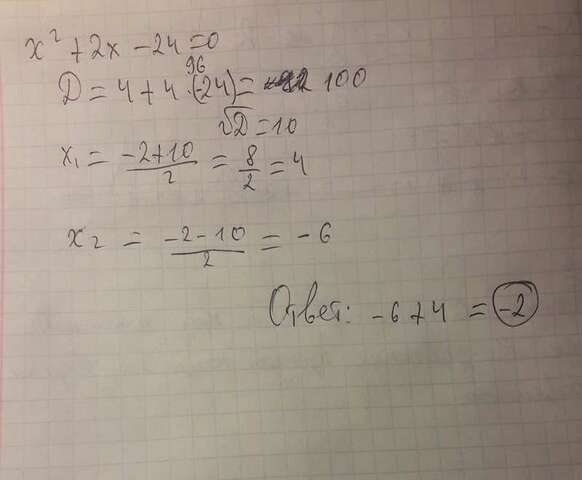 x² + 2x - 24 = 0
96
D = 4 + 4 · (-24) = 100
√D = 10
x₁ = (-2+10)/2 = 8/2 = 4
x₂ = (-2-10)/2 = -6
Ответ: -6+4 = -2